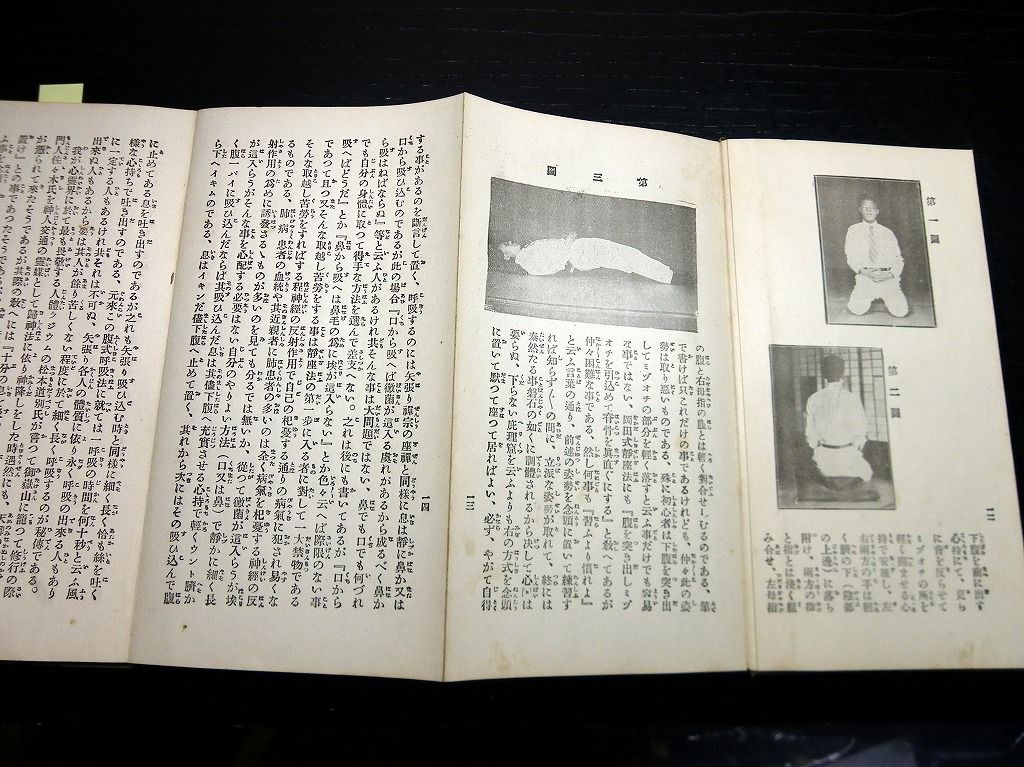 第一圖
第二圖
下腹を前に出す
に背を反らせて
ミヅオチの所を
輕く凹ませる心
持で安座し、左
右兩方の手は輕
く臍の下（陰部
の上邊）に落ち
附け、兩方の拇
とは輕く組
み合せ、左母指
一二
の腹と右母指の腹とは輕く對合せしむるのである、筆
で書けば只これだけの事であるけれども、仲々此の姿
勢は取り惡いものである、殊に初心者は下腹を突き出
してミヅオチの部分を輕く落すと云ふ事だけでも容易
な事ではない、岡田式靜座法にも『腹を突き出しミヅ
オチを引込めて脊骨を眞直ぐにする』と敎へてあるが
仲々困難な事である、然し何事も『習ふより慣れよ』
と云ふ言葉の通り、前述の姿勢を念頭に置いて練習す
れば知らず〱の間に、立派な姿勢が取れて、終には
泰然たる事磐石の如くに調體されるから決して心配は
要らぬ、下らない屁理窟を云ふよりも右の方式を念頭
に置いて默つて座つて居ればよい、必ず、やがて自得
第三圖
一三
する事があるのを斷言して置く、呼吸するのには矢張り禪宗の座禪と同樣に息は靜に鼻か又は
口から吸ひ込むのであるが此の場合『口から吸へば黴菌が這入る虞れがあるから成るべく鼻か
ら吸はねばならぬ』等と云ふ人があるけれ共そんな事は大問題ではない、鼻でも口でも何づれ
でも自分の身體に取つて得手な方法を選んで差支へない。之れは後にも書いてあるが『口から
吸へばどうだ』とか『鼻から吸へば鼻毛の爲に埃が這入らない』とか色々云へば際限のない事
であつて且つ又そんな取越し苦勞をする事は靜座法の第一步に入る者に對して一大禁物である
そんな取越し苦勞をすればする程神經の反射作用で自己の杞憂する通りの病氣に犯され易くな
るものである、肺病患者の血統や其近親者に肺患者の多いのは全く病氣に杞憂する神經の反
射作用の爲めに誘發さるゝものが多いのを見ても分るでは無いか、從つて黴菌が這入らうが埃
が這入らうがそんな事を心配する必要はない自分のやりよい方法（口又は鼻）で靜かに細く長
く腹一パイに吸ひ込んだならば其吸ひ込んだ息は其儘下腹へ充實させる心持で輕くウント臍か
ら下へイキムのである、息はイキンだ儘下腹へ止めて置く、其れから次にはその吸ひ込んで下腹
一四
に止めてある息を吐き出すのであるが之れも矢張り吸ひ込む時と同樣に細く長く恰も絲を吐く
樣な心持ちで吐き出すのである、元來この腹式呼吸法に就ては一呼吸の時間を何十秒と云ふ風
に一定する人もあるけれ共それは不可ぬ、矢張り各人の體質に依り永く呼吸の出來る人もあり
出來ぬ人もあるから要は其人が餘り苦しくない程度に於て細く長く呼吸するのが秘傳である。
我が心靈界に於て最も畏敬する人體ラジウムの松本道別氏が嘗つて御嶽山に籠つて修行の際
門人佐々木氏を神人交通の靈媒として歸神法に依り神降しをした時遇然にも、
が憑られて來たそうであるが其際の敎へには『十分の息を
置け』との事であつたそうである